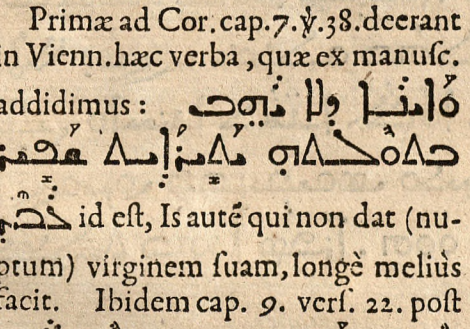 Primæ ad Cor. cap. 7. ỳ. 38. deerant
in Vienn. hæc verba, quæ ex manuſc.
addidimus : ܘܐܝܢܐ ܕܠܐ ܝܗܒ
ܒܬܘܠܬܗ ܝܬܝܪܐܝܬ ܫܦܝܪ
ܥܒܕ id eſt, Is autē qui non dat (nu-
ptum) virginem ſuam, longè meliùs
facit. Ibidem cap. 9. verſ. 22. poſt